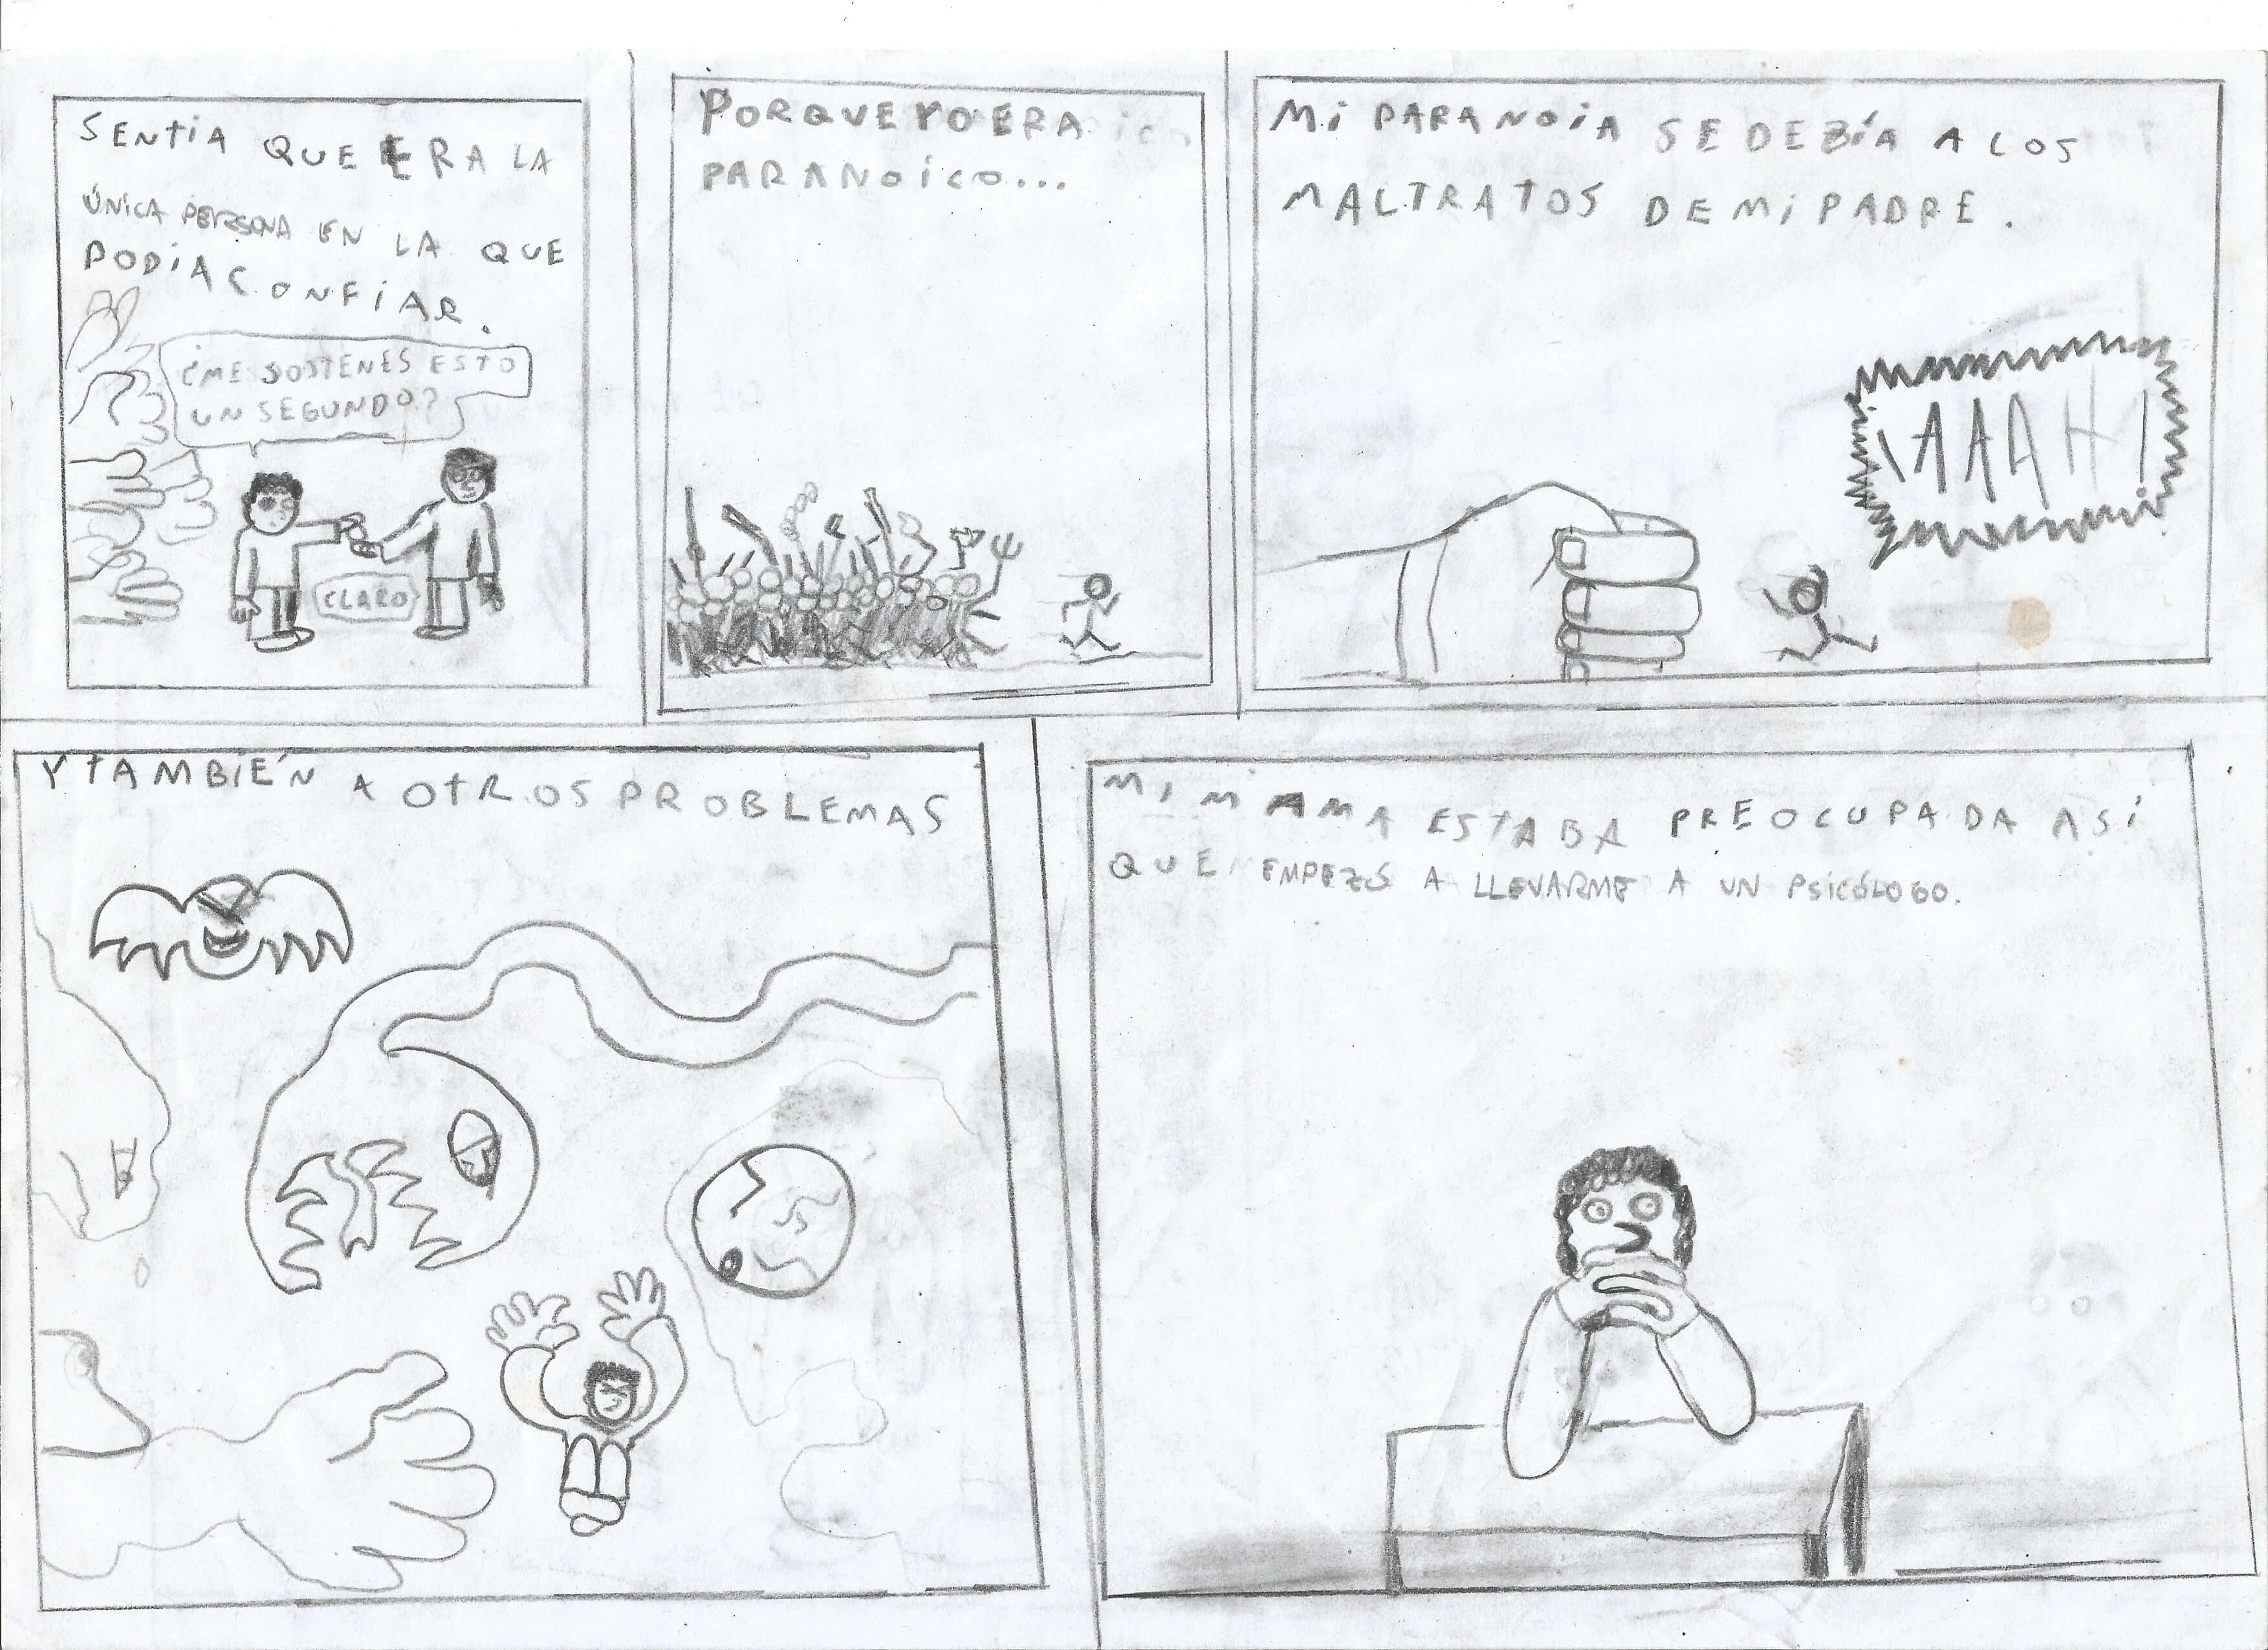 SENTIA QUE ERA LA
ÚNICA PERSONA EN LA QUE
PODIA CONFIAR.
¿ME SOSTENES ESTO
UN SEGUNDO?
CLARO
PORQUE YO ERA
PARANOICO...
MI PARANOIA SE DEBÍA A LOS
MALTRATOS DE MI PADRE.
¡AAAH!
Y TAMBIÉN A OTROS PROBLEMAS
MI MAMA ESTABA PREOCUPADA ASÍ
QUE EMPEZÓ A LLEVARME A UN PSICÓLOGO.